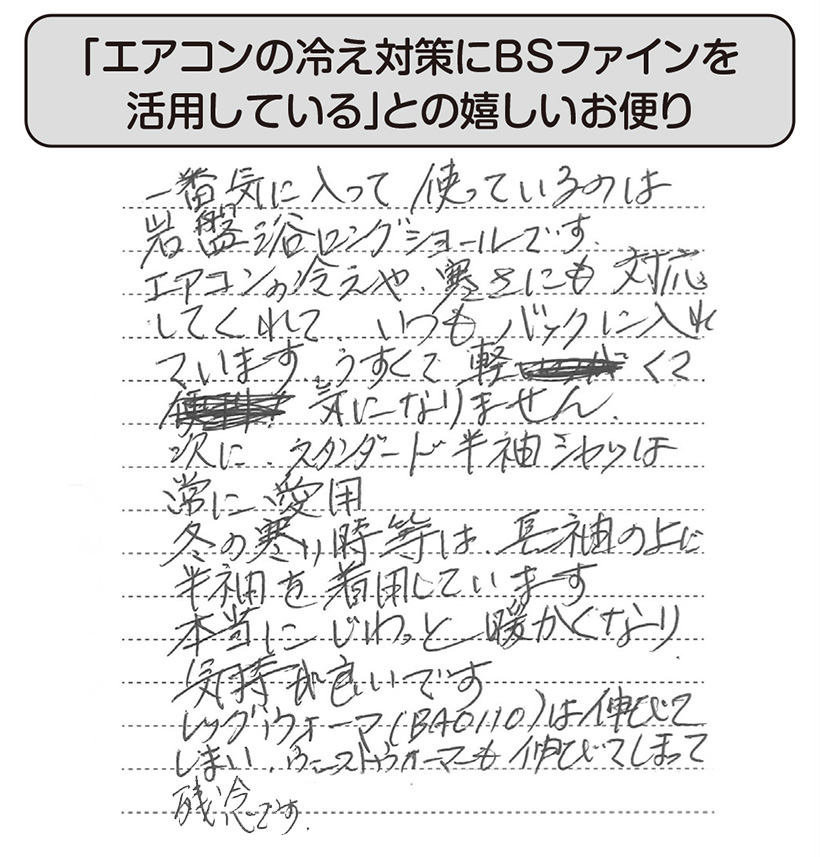 「エアコンの冷え対策にBSファインを
活用している」との嬉しいお便り
一番気に入って使っているのは
岩盤浴ロングショールです.
エアコンの冷えや、寒さにも対応
してくれて、いつもバックに入れ
ています、うすくて軽くて
気になりません.
次に、スタンダード半袖シャツは
常に愛用
冬の寒い時等は、長袖の上に
半袖を着用しています
本当にじわっと暖かくなり
気持が良いです
レッグウォーマ(BA0110)は伸びて
しまい、ウエストウォーマーも伸びてしまって
残念です.